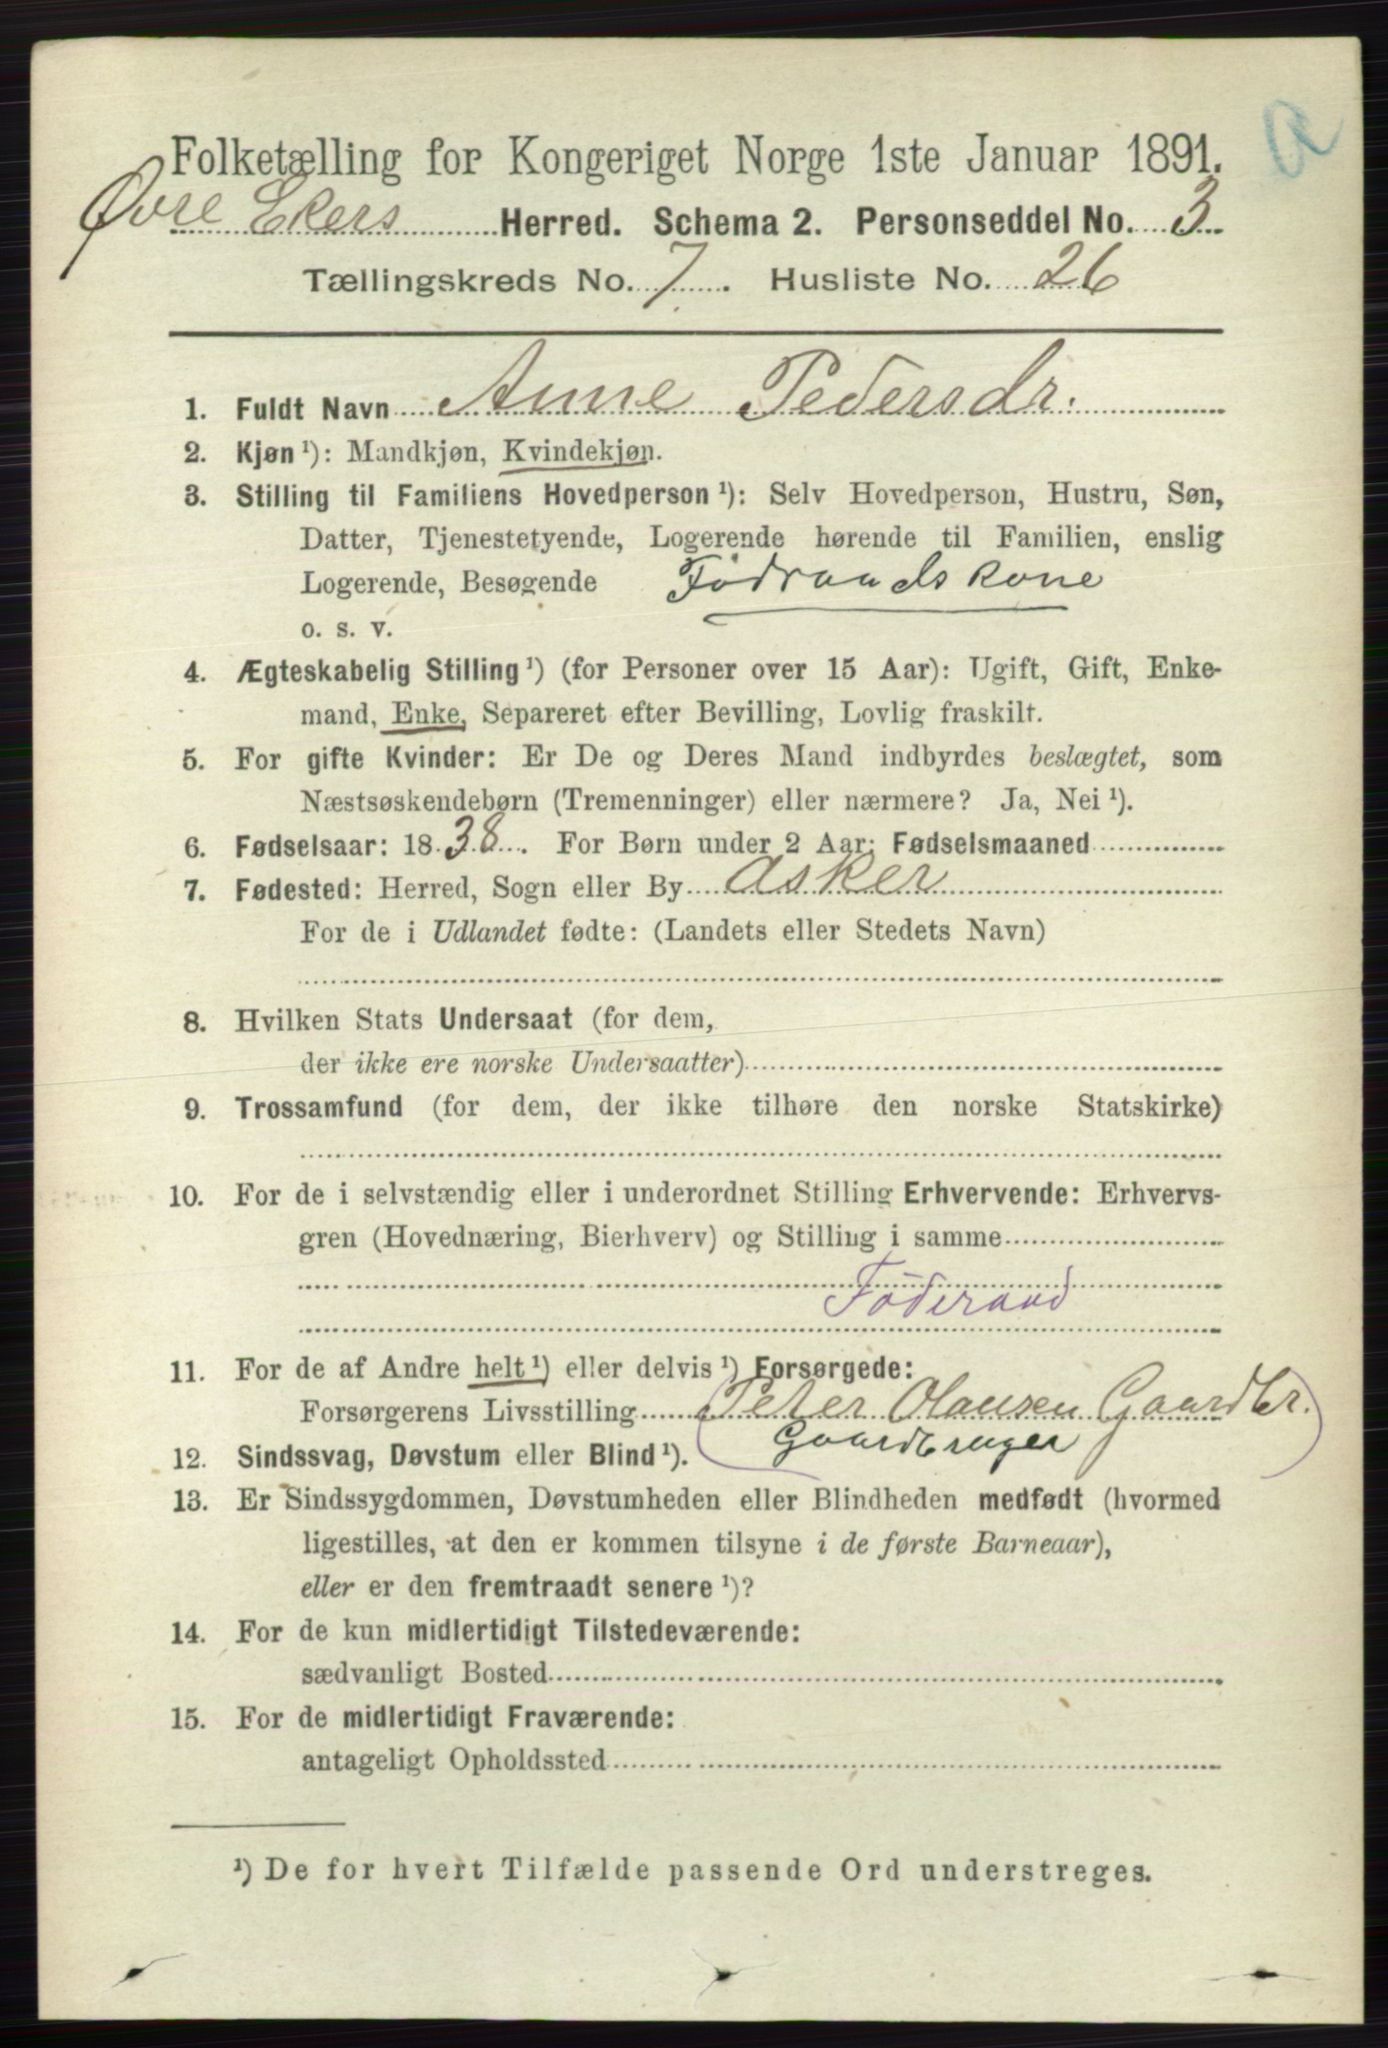 a
Folketælling for Kongeriget Norge 1ste Januar 1891.
Øvre Ekers Herred. Schema 2. Personseddel No. 3
Tællingskreds No. 7. Husliste No. 26
1. Fuldt Navn Anne Pedersdr.
2. Kjøn¹): Mandkjøn, Kvindekjøn.
3. Stilling til Familiens Hovedperson¹): Selv Hovedperson, Hustru, Søn,
Datter, Tjenestetyende, Logerende hørende til Familien, enslig
Logerende, Besøgende Födraadskone
o. s. v.
4. Ægteskabelig Stilling¹) (for Personer over 15 Aar): Ugift, Gift, Enke-
mand, Enke, Separeret efter Bevilling, Lovlig fraskilt.
5. For gifte Kvinder: Er De og Deres Mand indbyrdes beslægtet, som
Næstsøskendebørn (Tremenninger) eller nærmere? Ja, Nei¹).
6. Fødselsaar: 1838. For Børn under 2 Aar: Fødselsmaaned
7. Fødested: Herred, Sogn eller By Asker
For de i Udlandet fødte: (Landets eller Stedets Navn)
8. Hvilken Stats Undersaat (for dem,
der ikke ere norske Undersaatter)
9. Trossamfund (for dem, der ikke tilhøre den norske Statskirke)
10. For de i selvstændig eller i underordnet Stilling Erhvervende: Erhvervs-
gren (Hovednæring, Bierhverv) og Stilling i samme
Föderaad
11. For de af Andre helt¹) eller delvis¹) Forsørgede:
Forsørgerens Livsstilling (Peter Olausen Gaardbr.
Gaardbruger)
12. Sindssvag, Døvstum eller Blind¹).
13. Er Sindssygdommen, Døvstumheden eller Blindheden medfødt (hvormed
ligestilles, at den er kommen tilsyne i de første Barneaar),
eller er den fremtraadt senere¹)?
14. For de kun midlertidigt Tilstedeværende:
sædvanligt Bosted
15. For de midlertidigt Fraværende:
antageligt Opholdssted
¹) De for hvert Tilfælde passende Ord understreges.